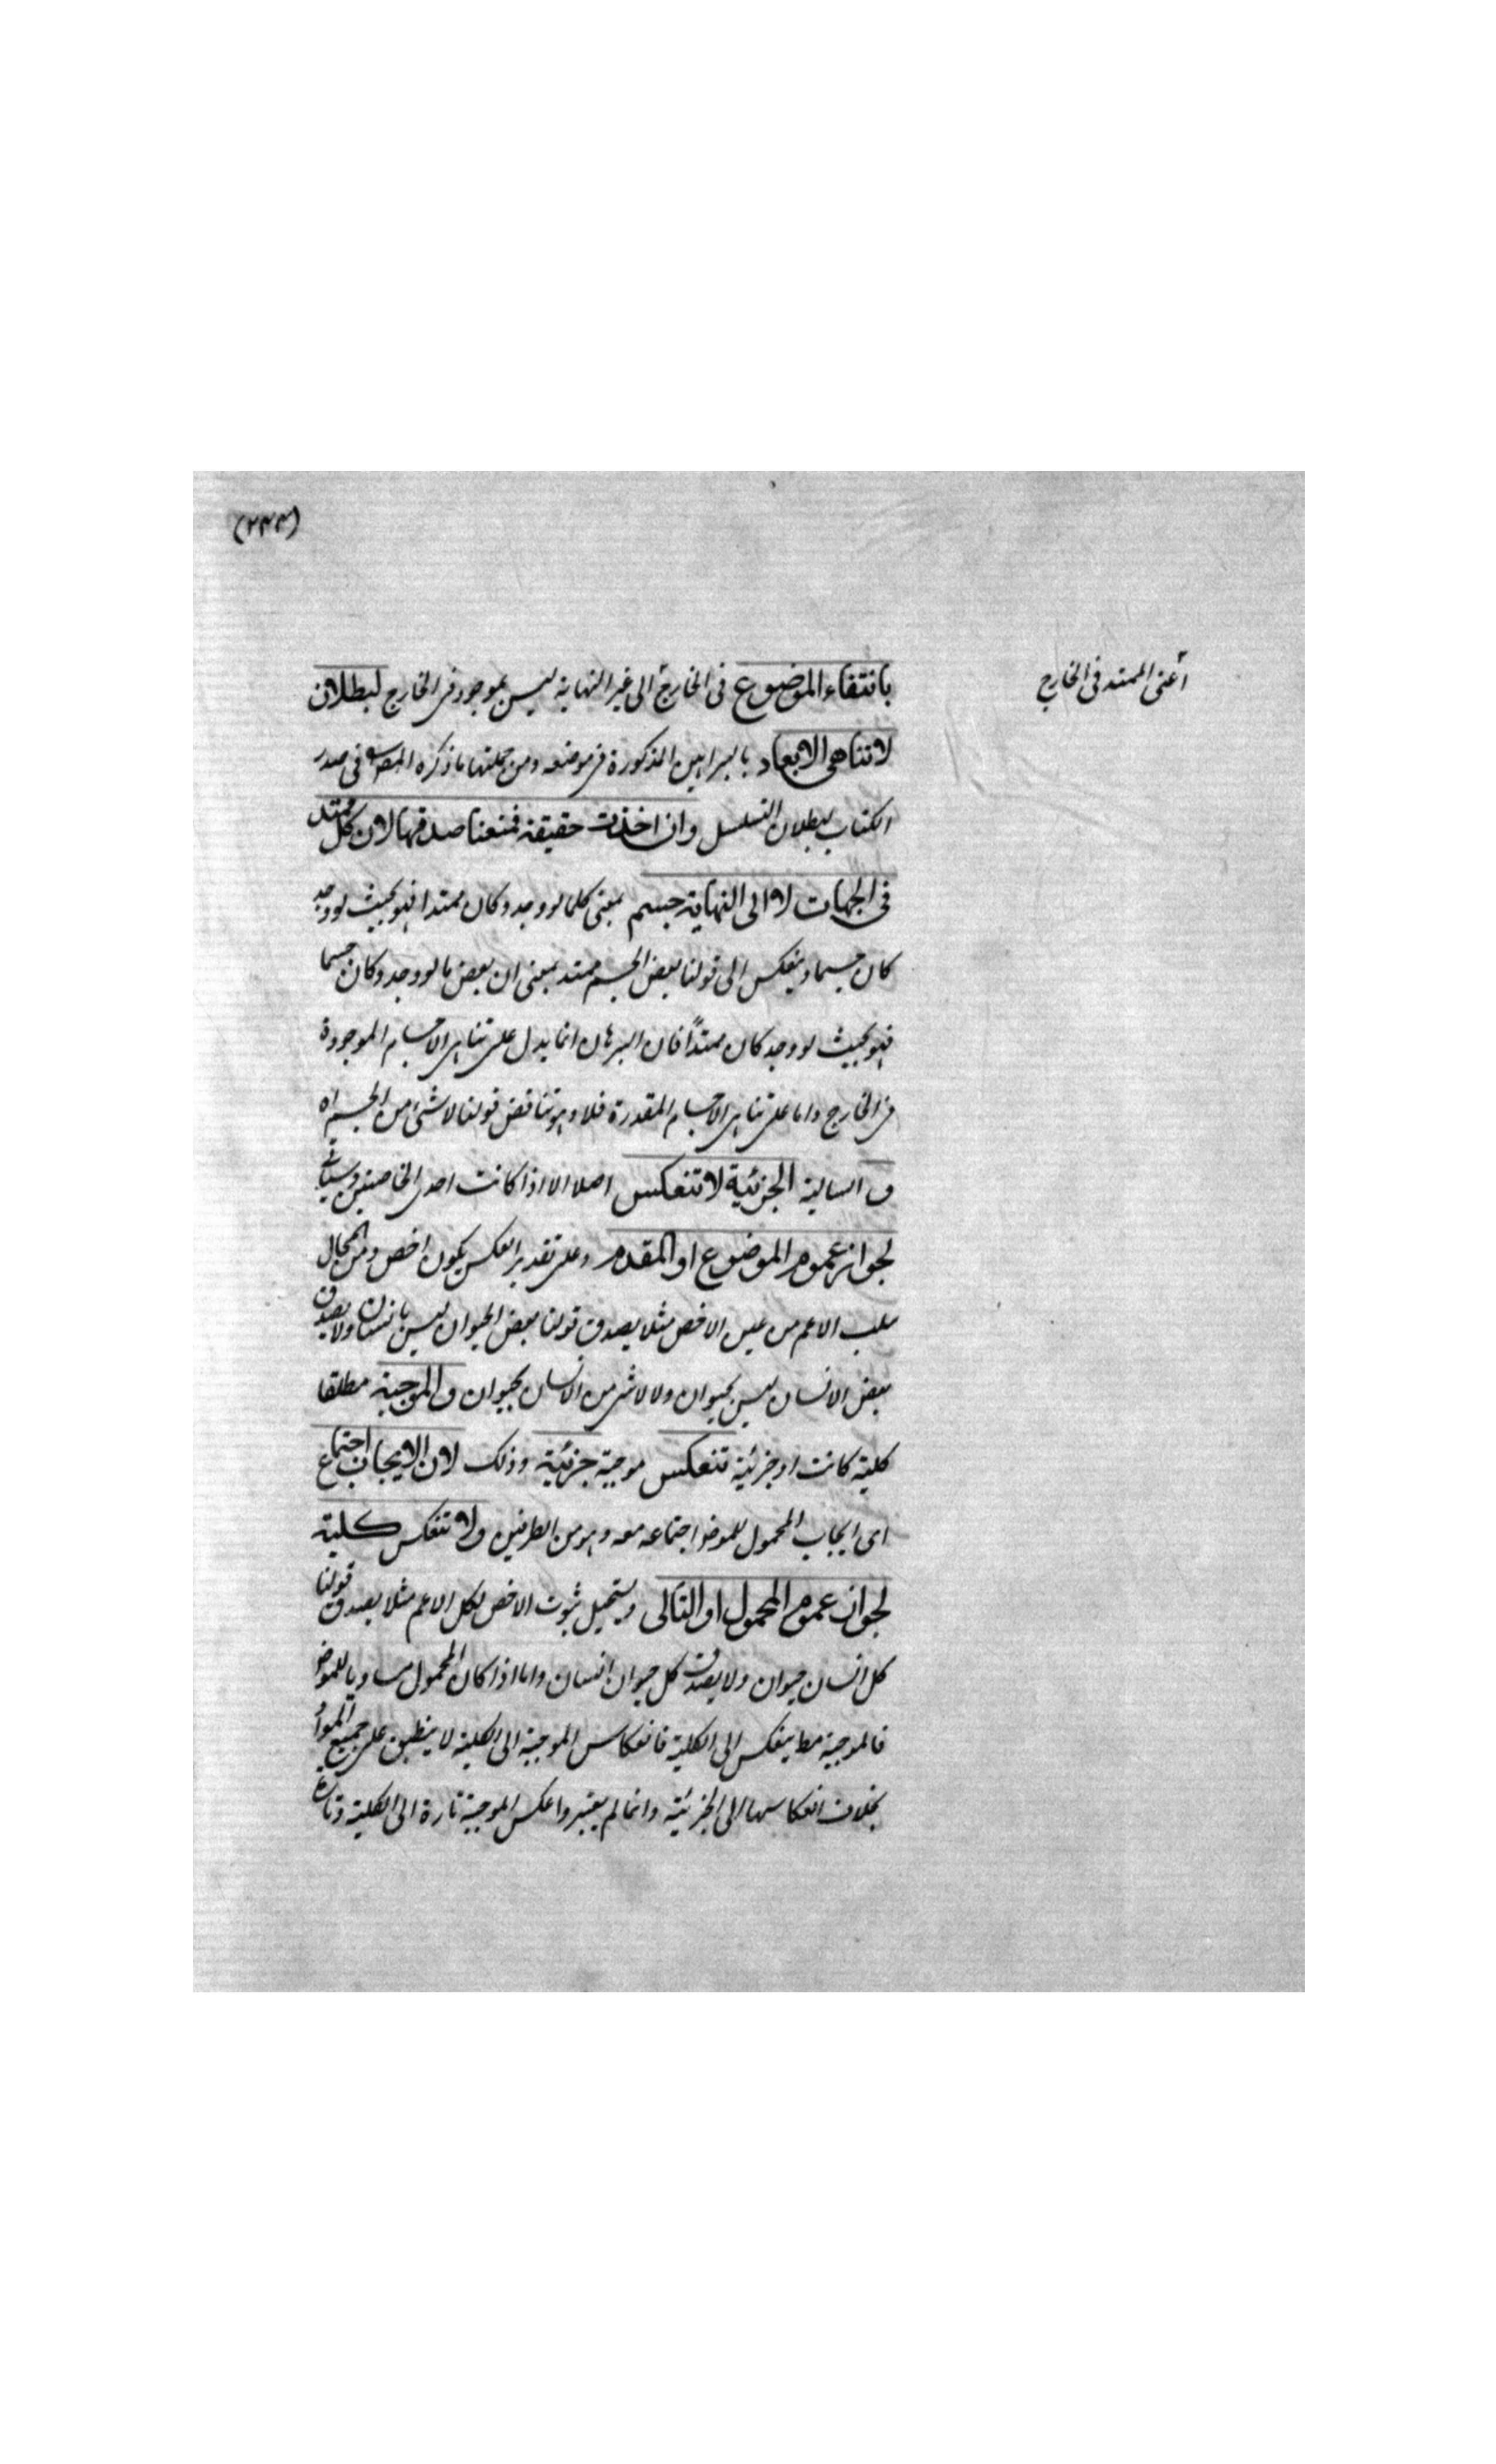 (٢٣٣)
أعنى الممتد فى الخارج
بانتفاء الموضوع فى الخارج الى غير النهاية ليس بموجود فى الخارج لبطلان
لا تناهى الابعاد بالبراهين المذكورة فى موضعه ومن جملتها ما ذكره المصـ فى صدر
الكتاب لبطلان التسلسل وان اخذت حقيقة فمنعنا صدقها لان كل ممتد
فى الجهات لا الى النهاية جسم بمعنى كلما لو وجد وكان ممتدا فهو بحيث لو وجد
كان جسما وينعكس الى قولنا بعض الجسم ممتد بمعنى ان بعض ما لو وجد وكان جسما
فهو بحيث لو وجد كان ممتدًا فان البرهان انما يدل على تناهى الاجسام الموجودة
فى الخارج واما على تناهى الاجسام المقدرة فلا وهو يناقض قولنا لا شئ من الجسم اه
و السالبة الجزئية لا تنعكس اصلا الا اذا كانت احدى الخاصتين وسياتى
لجواز عموم الموضوع او المقدم وعلى تقدير العكس يكون اخص ومن المحال
سلب الاعم من عين الاخص مثلا يصدق قولنا بعض الحيوان ليس بانسان ولا يصدق
بعض الانسان ليس بحيوان ولا لا شئ من الانسان بحيوان و الموجبة مطلقا
كلية كانت او جزئية تنعكس موجبة جزئية وذلك لان الايجاب اجتماع
اى ايجاب المحمول للموضـ اجتماعه معه وهو من الطرفين ولا تنعكس كلية
لجواز عموم المحمول او التالى ويستحيل ثبوت الاخص لكل الاعم مثلا يصدق قولنا
كل انسان حيوان ولا يصدق كل حيوان انسان واما اذا كان المحمول مساويا للموضـ
فالموجبة مط ينعكس الى الكلية فانعكاس الموجبة الى الكلية لا ينطبق على جميع المواد
بخلاف انعكاسها الى الجزئية وانما لم يعتبروا عكس الموجبة تارة الى الكلية وتارة